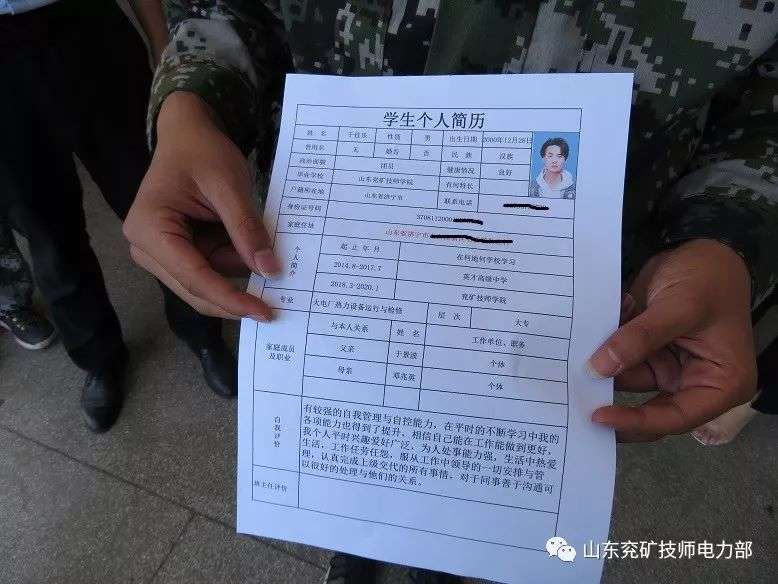 学生个人简历
姓 名 于佳乐 性别 男 出生日期 2000年12月28日
曾用名 无 婚否 否 民 族 汉族
政治面貌 团员 健康情况 良好
毕业学校 山东兖矿技师学院 有何特长
户籍所在地 山东省济宁市 联系电话
身份证号码 3708112000
家庭住址 山东省济宁市
个人简介 起止年月 在何地何学校学习
2014.8-2017.7 英才高级中学
2018.3-2020.1 兖矿技师学院
专业 火电厂热力设备运行与检修 层 次 大专
家庭成员及职业 与本人关系 姓 名 工作单位、职务
父亲 于景波 个体
母亲 邓兆英 个体
自我评价
有较强的自我管理与自控能力，在平时的不断学习中我的
各项能力也得到了提升，相信自己能在工作能做到更好，
我个人平时兴趣爱好广泛，为人处事能力强，生活中热爱
生活，工作任劳任怨，服从工作中领导的一切安排与管
理，认真完成上级交代的所有事情，对于同事善于沟通可
以很好的处理与他们的关系。
班主任评价
山东兖矿技师电力部